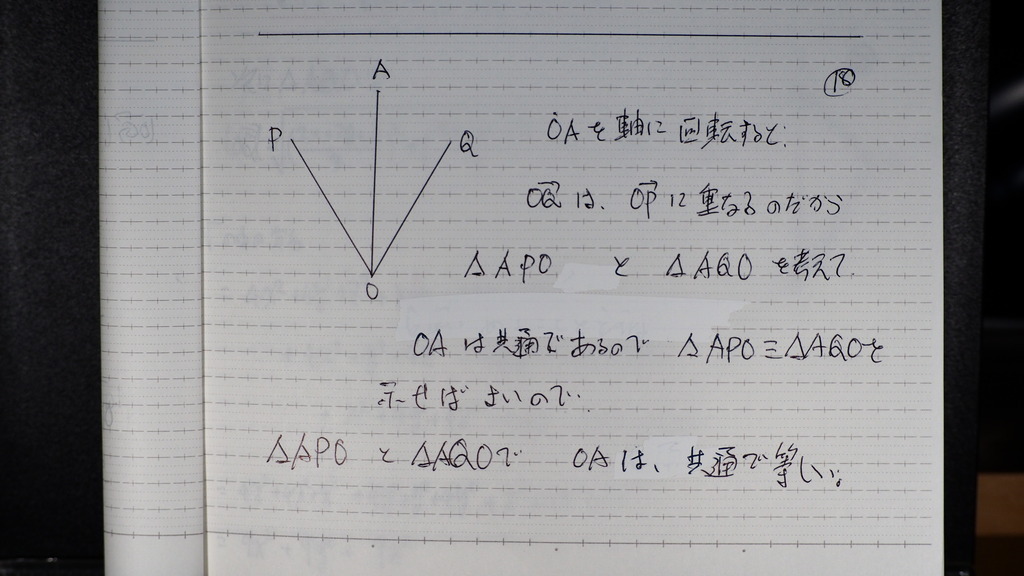 ⑱
A
P
Q
O
OAを軸に回転すると.
OQ→は、OP→に重なるのだから
△APO と △AQOを考えて.
OAは共通であるので △APO≡△AQOを
示せばよいので.
△APOと△AQOで OAは、共通で等しい。